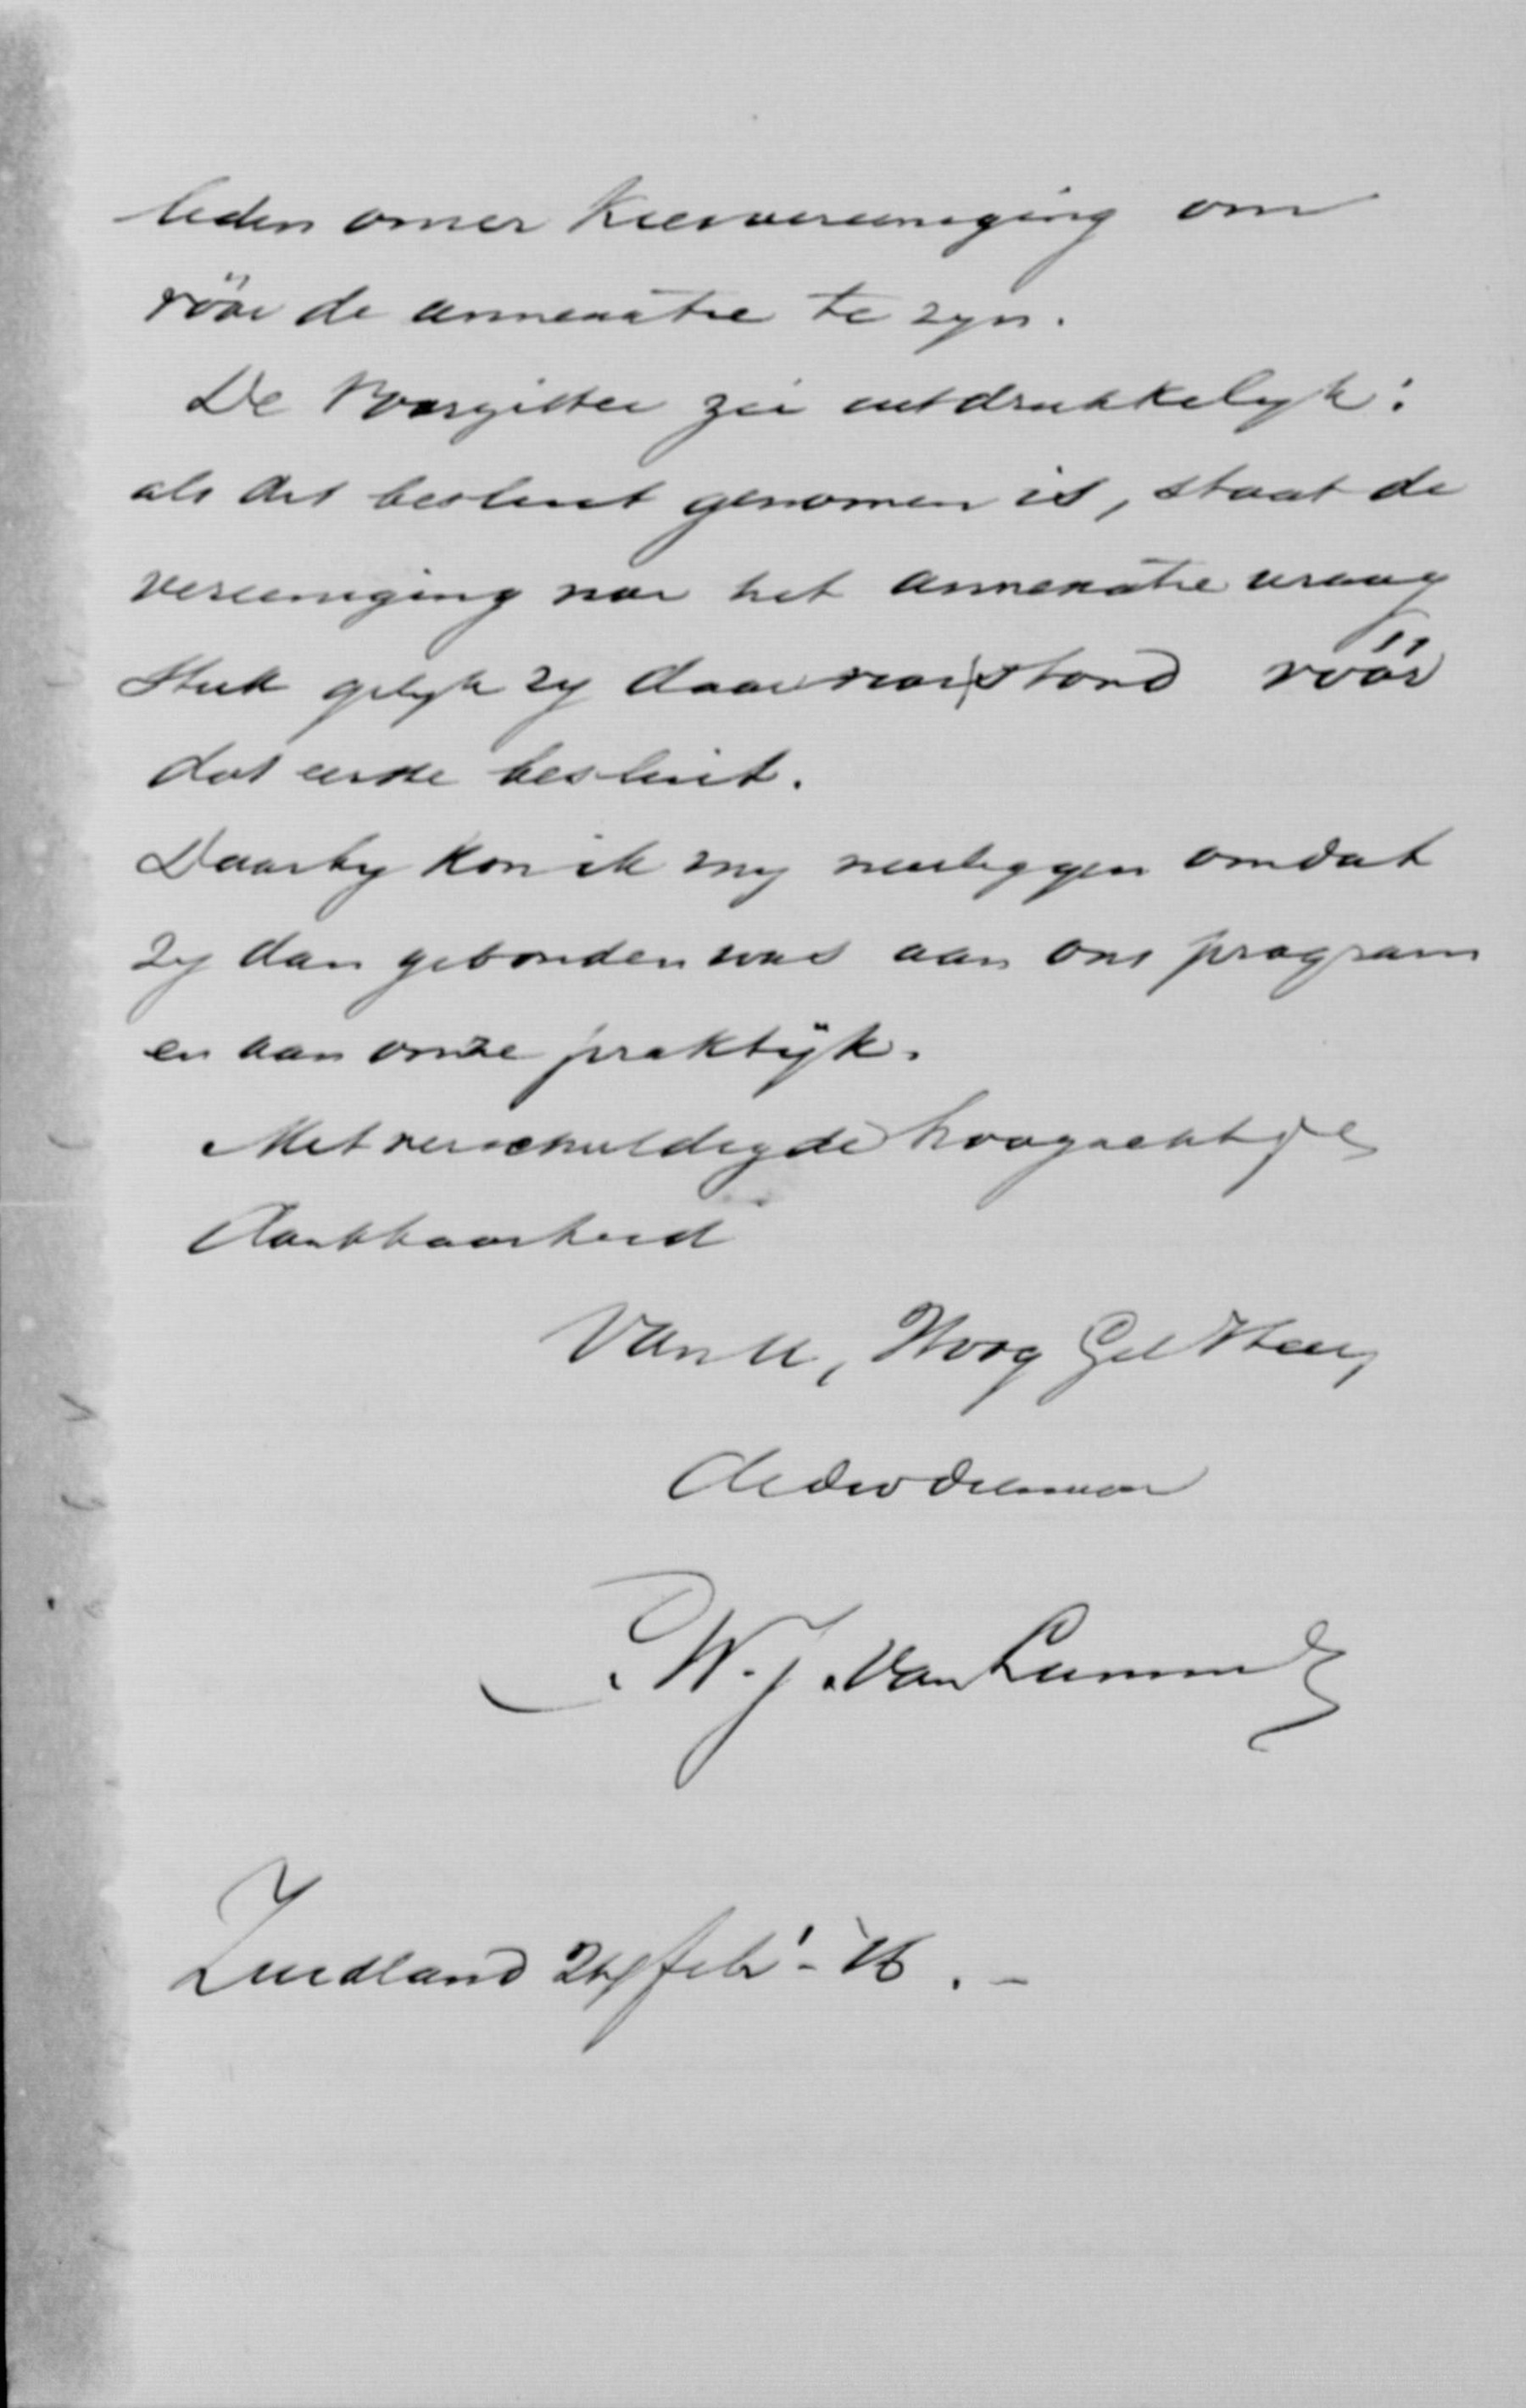 leden onzer Kiesvereeniging om
vóór de annexatie te zyn.
De Voorzitter zei uitdrukkelyk:
als dit besluit genomen is, staat de
vereeniging voor het annexatie vraag
stuk gelyk zy daarvoor stond vóór
dat eerste besluit.
Daarby kon ik my neerleggen omdat
zy dan gebonden was aan ons program
en aan onze praktijk.
Met verschuldigde hoogachting
Dankbaarheid
Van U, Hoog Gel Heer,
de dw dienaar
W. J. van Lummel
Zuidland 24 febr - '16. -